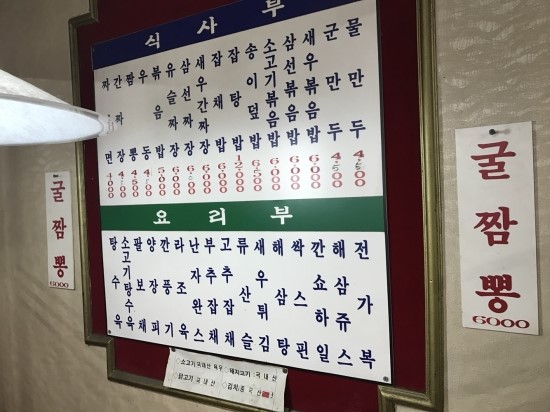 식사부
간짜장
짬뽕
우동
볶음밥 5000
유슬짜장 6000
삼선짜장 6000
새우간짜장 6000
잡채밥 6000
잡탕밥 12000
송이덮밥
소고기볶음밥
삼선볶음밥 6000
새우볶음밥 6000
군만두 4500
물만두 4500
요리부
탕수육
소고기탕수육
팔보채
양장피
깐풍기
라조육
난자완스
부추잡채
고추잡채
류산슬
새우튀김
해삼탕
싹스핀
깐쇼하일
해삼쥬스
전가복
굴짬뽕
6000
굴짬뽕
6000
돼지고기:국내산
닭고기 국내산